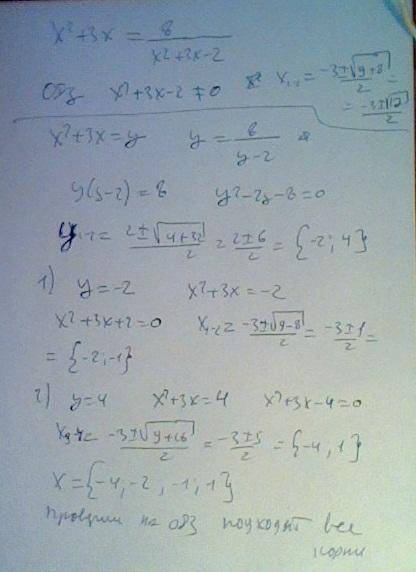 x²+3x = 8/(x²+3x-2)
ОДЗ x²+3x-2≠0 x₁,₂ = (-3±√(9+8))/2 =
= (-3±√17)/2
x²+3x=y y = 8/(y-2)
y(y-2)=8 y²-2y-8=0
y₁,₂ = (2±√(4+32))/2 = (2±6)/2 = {-2; 4}
1) y=-2 x²+3x=-2
x²+3x+2=0 x₁,₂= (-3±√(9-8))/2 = (-3±1)/2 =
= {-2,-1}
2) y=4 x²+3x=4 x²+3x-4=0
x₃,₄= (-3±√(9+16))/2 = (-3±5)/2 = {-4, 1}
x={-4,-2,-1,1}
на ОДЗ подходят все
корни